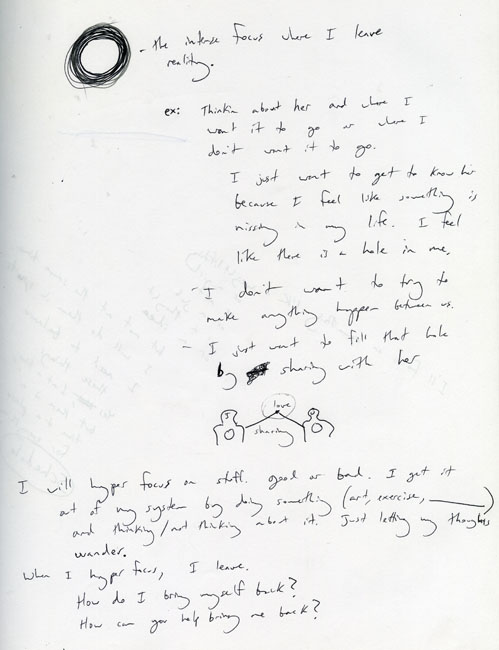 - the intense focus where I leave
reality.
ex: Thinkin about her and where I
want it to go or where I
don't want it to go.
I just want to get to know her
because I feel like something is
missing in my life. I feel
like there is a hole in me.
- I don't want to try to
make anything happen between us.
- I just want to fill that hole
by sharing with her
love
I
sharing
I will hyper focus on stuff. good or bad. I get it
out of my system by doing something (art, exercise, ______)
and thinking/not thinking about it. Just letting my thoughts
wander.
When I hyper focus, I leave.
How do I bring myself back?
How can you help bring me back?